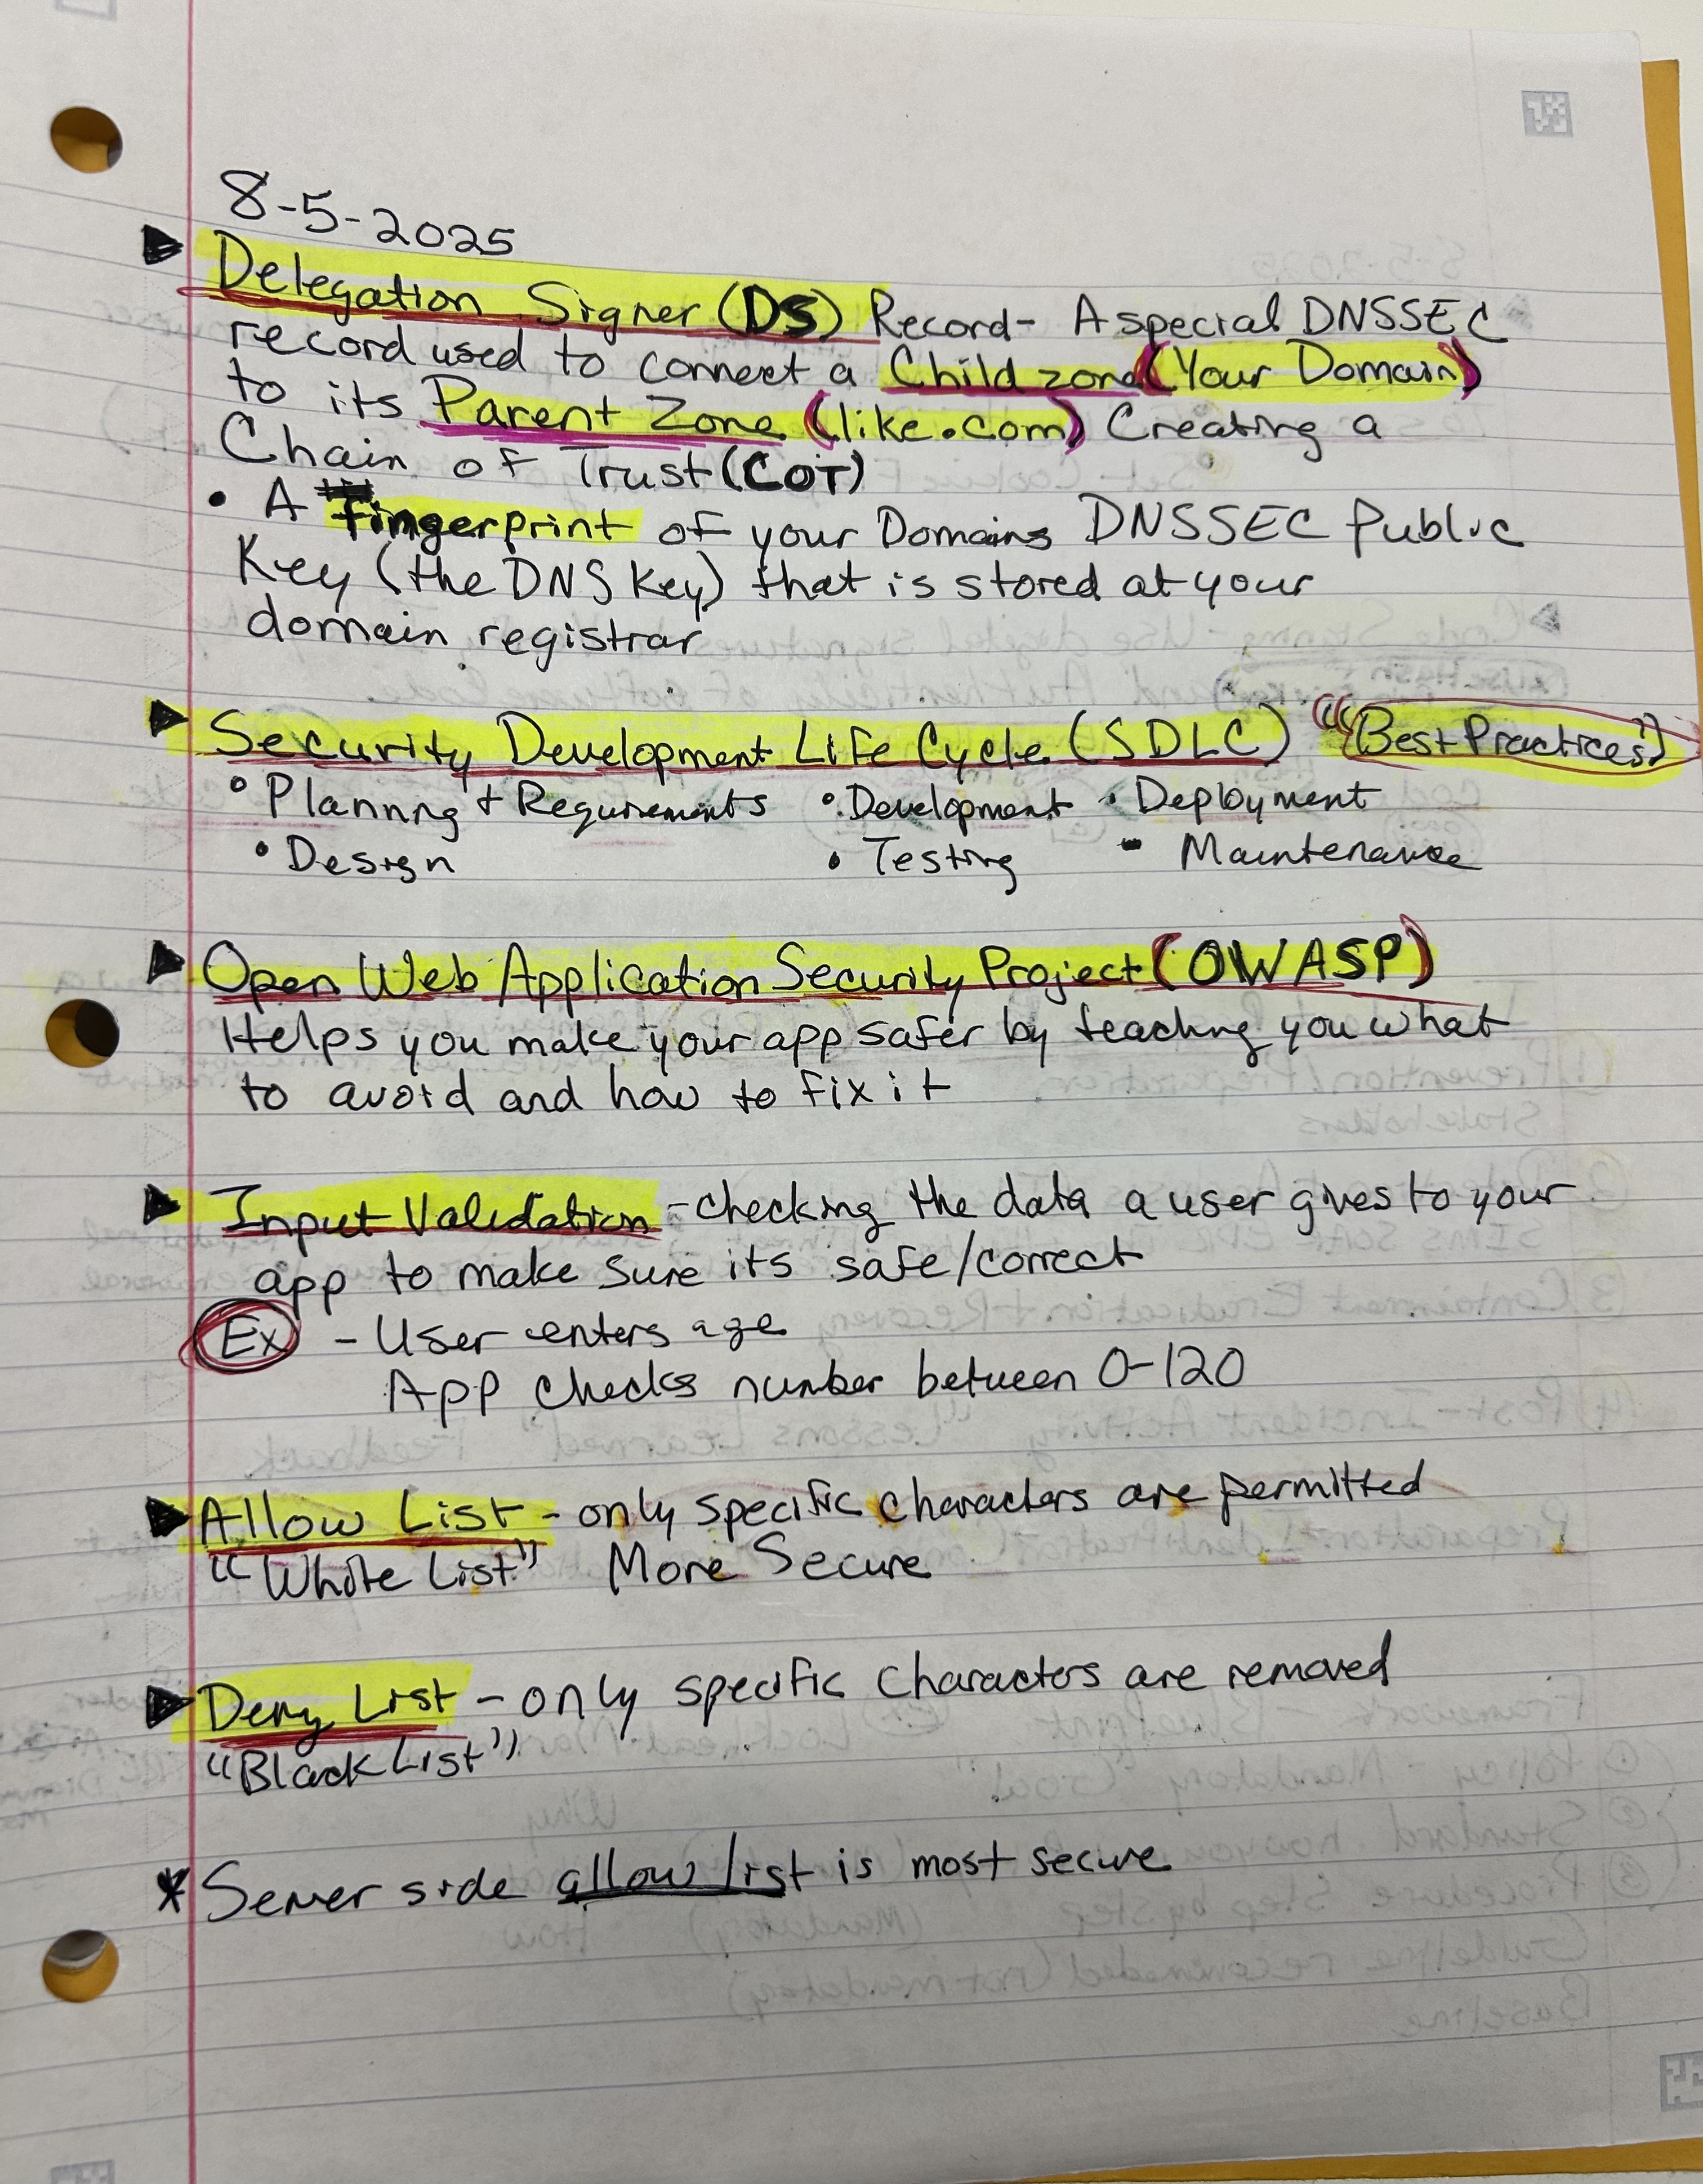 8-5-2025
Delegation Signer (DS) Record- A special DNSSEC
record used to connect a Child zone (Your Domain)
to its Parent Zone (like .com) Creating a
Chain of Trust (COT)
• A fingerprint of your Domains DNSSEC Public
Key (the DNS Key) that is stored at your
domain registrar
Security Development Life Cycle (SDLC) "(Best Practices)"
• Planning + Requirements • Development • Deployment
• Design • Testing - Maintenance
Open Web Application Security Project (OWASP)
Helps you make your app safer by teaching you what
to avoid and how to fix it
Input Validation - checking the data a user gives to your
app to make sure its safe/correct
Ex - User enters age
App checks number between 0-120
Allow List - only specific characters are permitted
"White List" More Secure
Deny List - only specific characters are removed
"Black List"
* Server side allow list is most secure